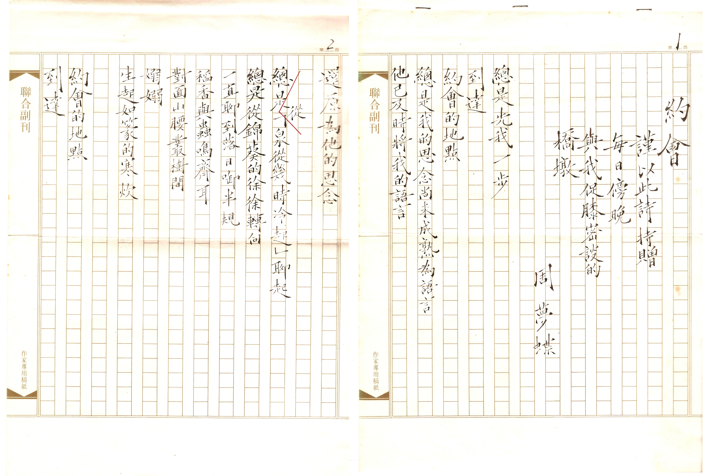 1
約會
謹以此詩持贈
每日傍晚
與我促膝密談的
橋墩
周夢蝶
總是先我一步
到達
約會的地點
總是我的思念尚未成熟為語言
他已及時將我的語言
聯合副刊
作家專用稿紙
2
還原為他的思念
總是從「泉從幾時冷起」聊起
總是從錦葵的徐徐轉向
一直聊到落日啣半規
稻香與蟲鳴齊耳
對面山腰叢樹間
嫋嫋
生起如篆的寒炊
約會的地點
到達
聯合副刊
作家專用稿紙